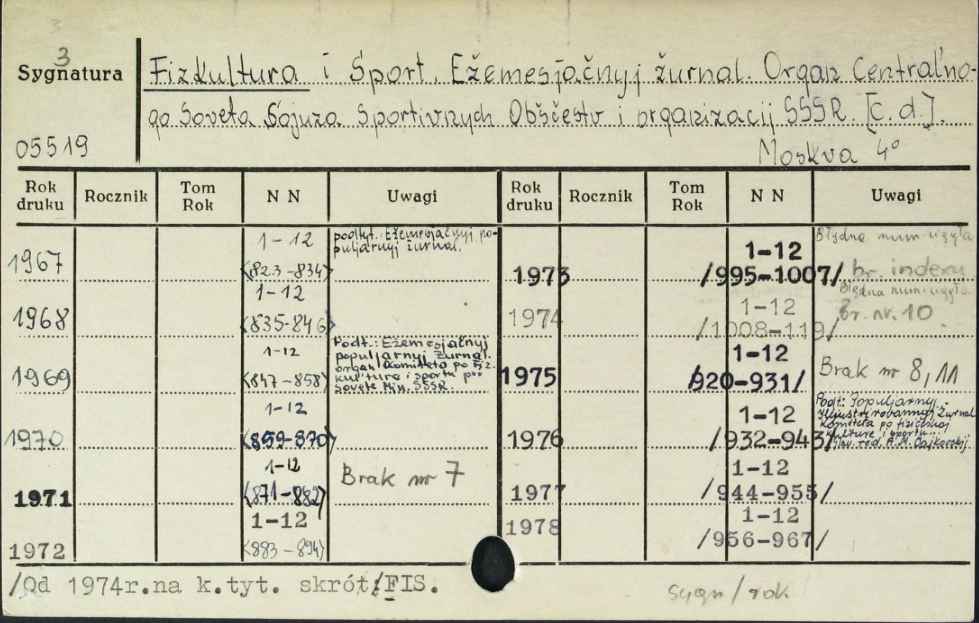 3
Sygnatura
05519
Fizkultura i Sport. Ežemesjačnyj žurnal. Organ Central'no-
go Soveta Sojuza Sportivnych Obščestv i organizacij SSSR. [C.d.].
Moskva 4°
Rok druku Rocznik Tom Rok N N Uwagi Rok druku Rocznik Tom Rok N N Uwagi
1967 1-12 <823-834> podtyt.: Ežemesjačnyj po-
puljarnyj žurnal.
1968 1-12 <835-846>
1969 1-12 <847-858> Podt.: Ežemesjačnyj
populjarnyj žurnal.
organ Komiteta po fiz.
kulture i sportu pri
Sovete Min. SSSR.
1970 1-12 <859-870>
1971 1-12 <871-882> Brak nr 7
1972 1-12 <883-894>
1973 1-12 /995-1007/ Błędna num.
br. indexu
1974 1-12 /1008-119/ Błędna num.
Br. nr. 10
1975 1-12 /920-931/ Brak nr 8, 11
1976 1-12 /932-943/ Podt: Populjarnyj
illjustrirovannyj žurnal
Komiteta po fizičeskoj
kulture i sportu
red. A.M. Čajkovskij.
1977 1-12 /944-955/
1978 1-12 /956-967/
/Od 1974r.na k.tyt. skrót:FIS.
sygn/rok